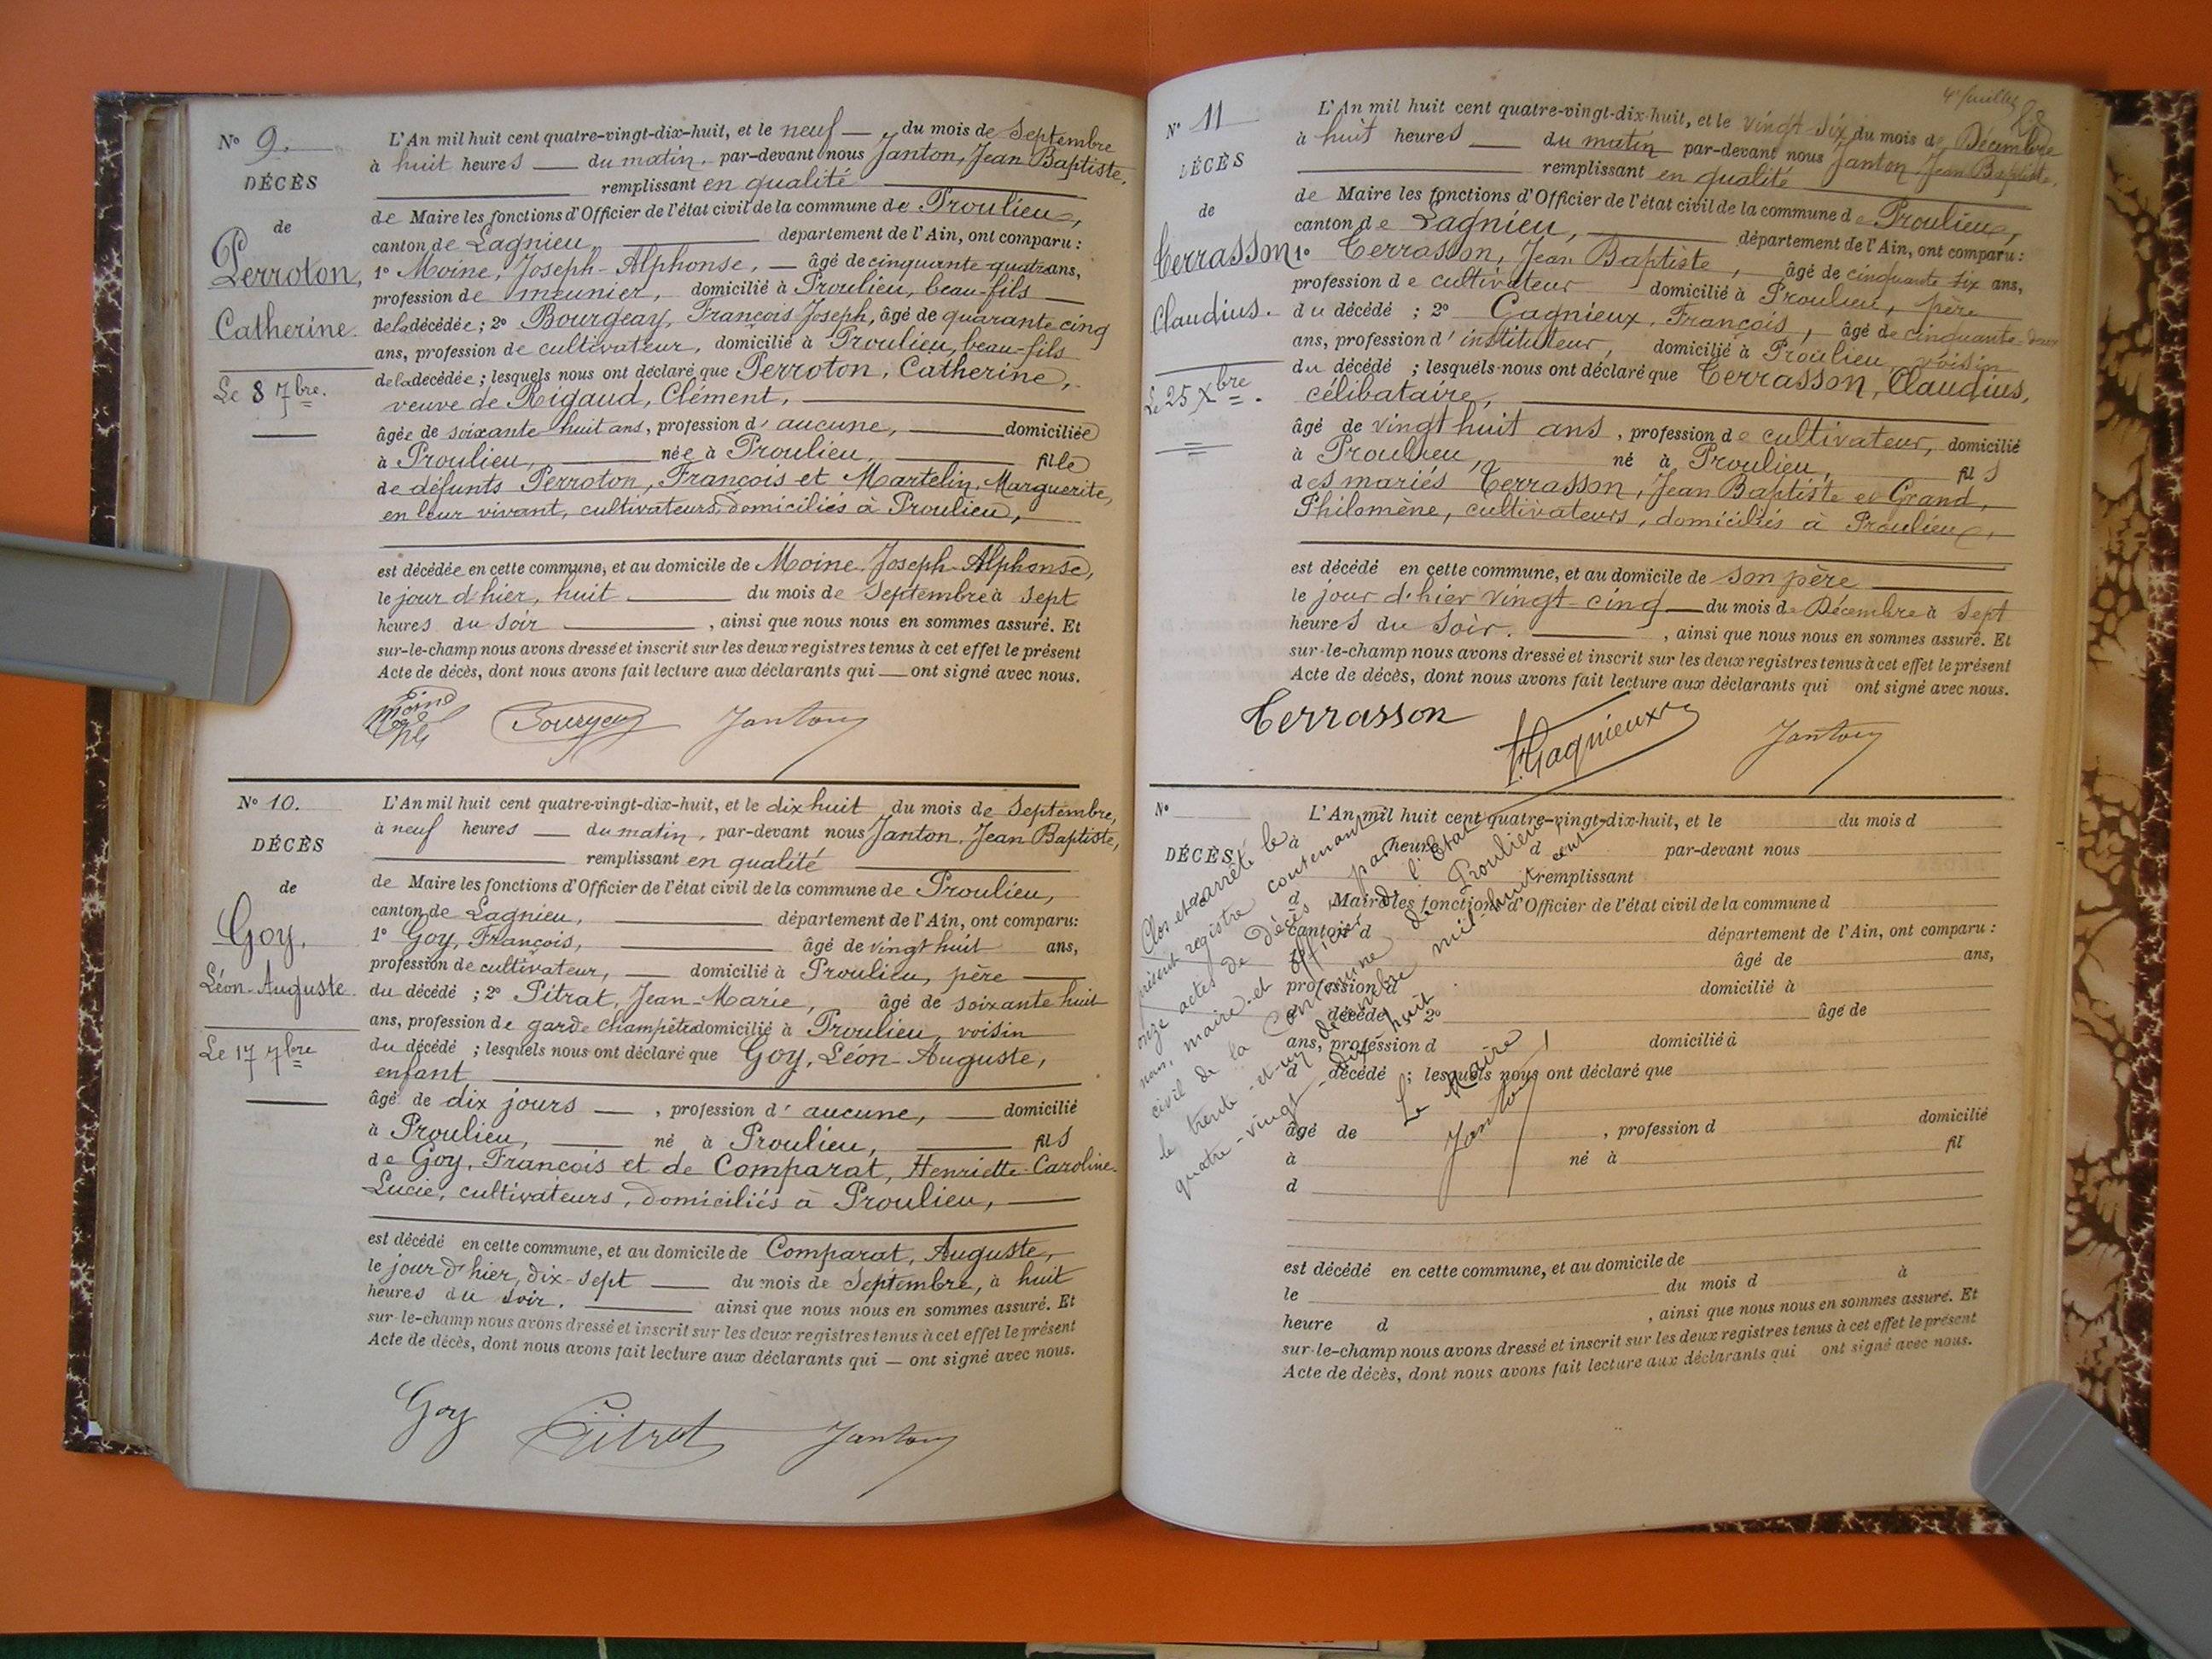 N° 9.
DÉCÈS
de
Perroton,
Catherine.
Le 8 7bre.
L'An mil huit cent quatre-vingt-dix-huit, et le neuf du mois de Septembre
à huit heures du matin, par-devant nous Janton, Jean Baptiste,
remplissant en qualité
de Maire les fonctions d'Officier de l'état civil de la commune de Proulieu,
canton de Lagnieu, département de l'Ain, ont comparu :
1° Moine, Joseph-Alphonse, âgé de cinquante quatre ans,
profession de meunier, domicilié à Proulieu, beau-fils
de la décédée ; 2° Bourgeay, François Joseph, âgé de quarante cinq
ans, profession de cultivateur, domicilié à Proulieu, beau-fils
de la décédée ; lesquels nous ont déclaré que Perroton, Catherine,
veuve de Rigaud, Clément,
âgée de soixante-huit ans, profession d' aucune, domiciliée
à Proulieu, née à Proulieu, fille
de défunts Perroton, François et Martelin, Marguerite,
en leur vivant, cultivateurs, domiciliés à Proulieu,
est décédée en cette commune, et au domicile de Moine Joseph-Alphonse,
le jour d'hier, huit du mois de Septembre à sept
heures du soir, ainsi que nous nous en sommes assuré. Et
sur-le-champ nous avons dressé et inscrit sur les deux registres tenus à cet effet le présent
Acte de décès, dont nous avons fait lecture aux déclarants qui ont signé avec nous.
Moine Bourgeay Janton
N° 10.
DÉCÈS
de
Goy,
Léon-Auguste.
Le 17 7bre
L'An mil huit cent quatre-vingt-dix-huit, et le dix huit du mois de Septembre,
à neuf heures du matin, par-devant nous Janton, Jean Baptiste,
remplissant en qualité
de Maire les fonctions d'Officier de l'état civil de la commune de Proulieu,
canton de Lagnieu, département de l'Ain, ont comparu:
1° Goy, François, âgé de vingt huit ans,
profession de cultivateur, domicilié à Proulieu, père
du décédé ; 2° Pitrat, Jean-Marie, âgé de soixante huit
ans, profession de garde champêtre domicilié à Proulieu, voisin
du décédé ; lesquels nous ont déclaré que Goy, Léon-Auguste,
enfant
âgé de dix jours, profession d' aucune, domicilié
à Proulieu, né à Proulieu, fils
de Goy, François et de Comparat, Henriette-Caroline-
Lucie, cultivateurs, domiciliés à Proulieu,
est décédé en cette commune, et au domicile de Comparat, Auguste,
le jour d'hier, dix-sept du mois de Septembre, à huit
heures du soir. ainsi que nous nous en sommes assuré. Et
sur-le-champ nous avons dressé et inscrit sur les deux registres tenus à cet effet le présent
Acte de décès, dont nous avons fait lecture aux déclarants qui — ont signé avec nous.
Goy Pitrat Janton
4e feuillet
N° 11
DÉCÈS
de
Terrasson
Claudius.
Le 25 Xbre.
L'An mil huit cent quatre-vingt-dix-huit, et le vingt-six du mois de Décembre
à huit heures du matin par-devant nous Janton Jean Baptiste,
remplissant en qualité
de Maire les fonctions d'Officier de l'état civil de la commune de Proulieu,
canton de Lagnieu, département de l'Ain, ont comparu :
1° Terrasson, Jean Baptiste, âgé de cinquante six ans,
profession de cultivateur domicilié à Proulieu, père
du décédé ; 2° Gagnieux, François, âgé de cinquante-deux
ans, profession d'instituteur, domicilié à Proulieu, voisin
du décédé ; lesquels nous ont déclaré que Terrasson, Claudius,
célibataire,
âgé de vingt huit ans, profession de cultivateur, domicilié
à Proulieu, né à Proulieu, fils
des mariés Terrasson, Jean Baptiste et Grand,
Philomène, cultivateurs, domiciliés à Proulieu,
est décédé en cette commune, et au domicile de son père
le jour d'hier vingt-cinq du mois de Décembre à sept
heures du soir. , ainsi que nous nous en sommes assuré. Et
sur-le-champ nous avons dressé et inscrit sur les deux registres tenus à cet effet le présent
Acte de décès, dont nous avons fait lecture aux déclarants qui ont signé avec nous.
Terrasson F. Gagnieux Janton
N°
DÉCÈS
L'An mil huit cent quatre-vingt-dix-huit, et le du mois d
à heure d par-devant nous
remplissant
d Maire les fonctions d'Officier de l'état civil de la commune d
canton d département de l'Ain, ont comparu :
1° âgé de ans,
profession d domicilié à
d décédé 2° âgé de
ans, profession d domicilié à
d décédé ; lesquels nous ont déclaré que
âgé de , profession d domicilié
à né à fil
d
est décédé en cette commune, et au domicile de
le du mois d à
heure d , ainsi que nous nous en sommes assuré. Et
sur-le-champ nous avons dressé et inscrit sur les deux registres tenus à cet effet le présent
Acte de décès, dont nous avons fait lecture aux déclarants qui ont signé avec nous.
Clos et arrêté le
présent registre contenant
onze actes de décès, par
nous, maire et officier de l'état
civil de la Commune de Proulieu,
le trente-et-un décembre mil huit cent
quatre-vingt-dix-huit.
Le Maire
Janton